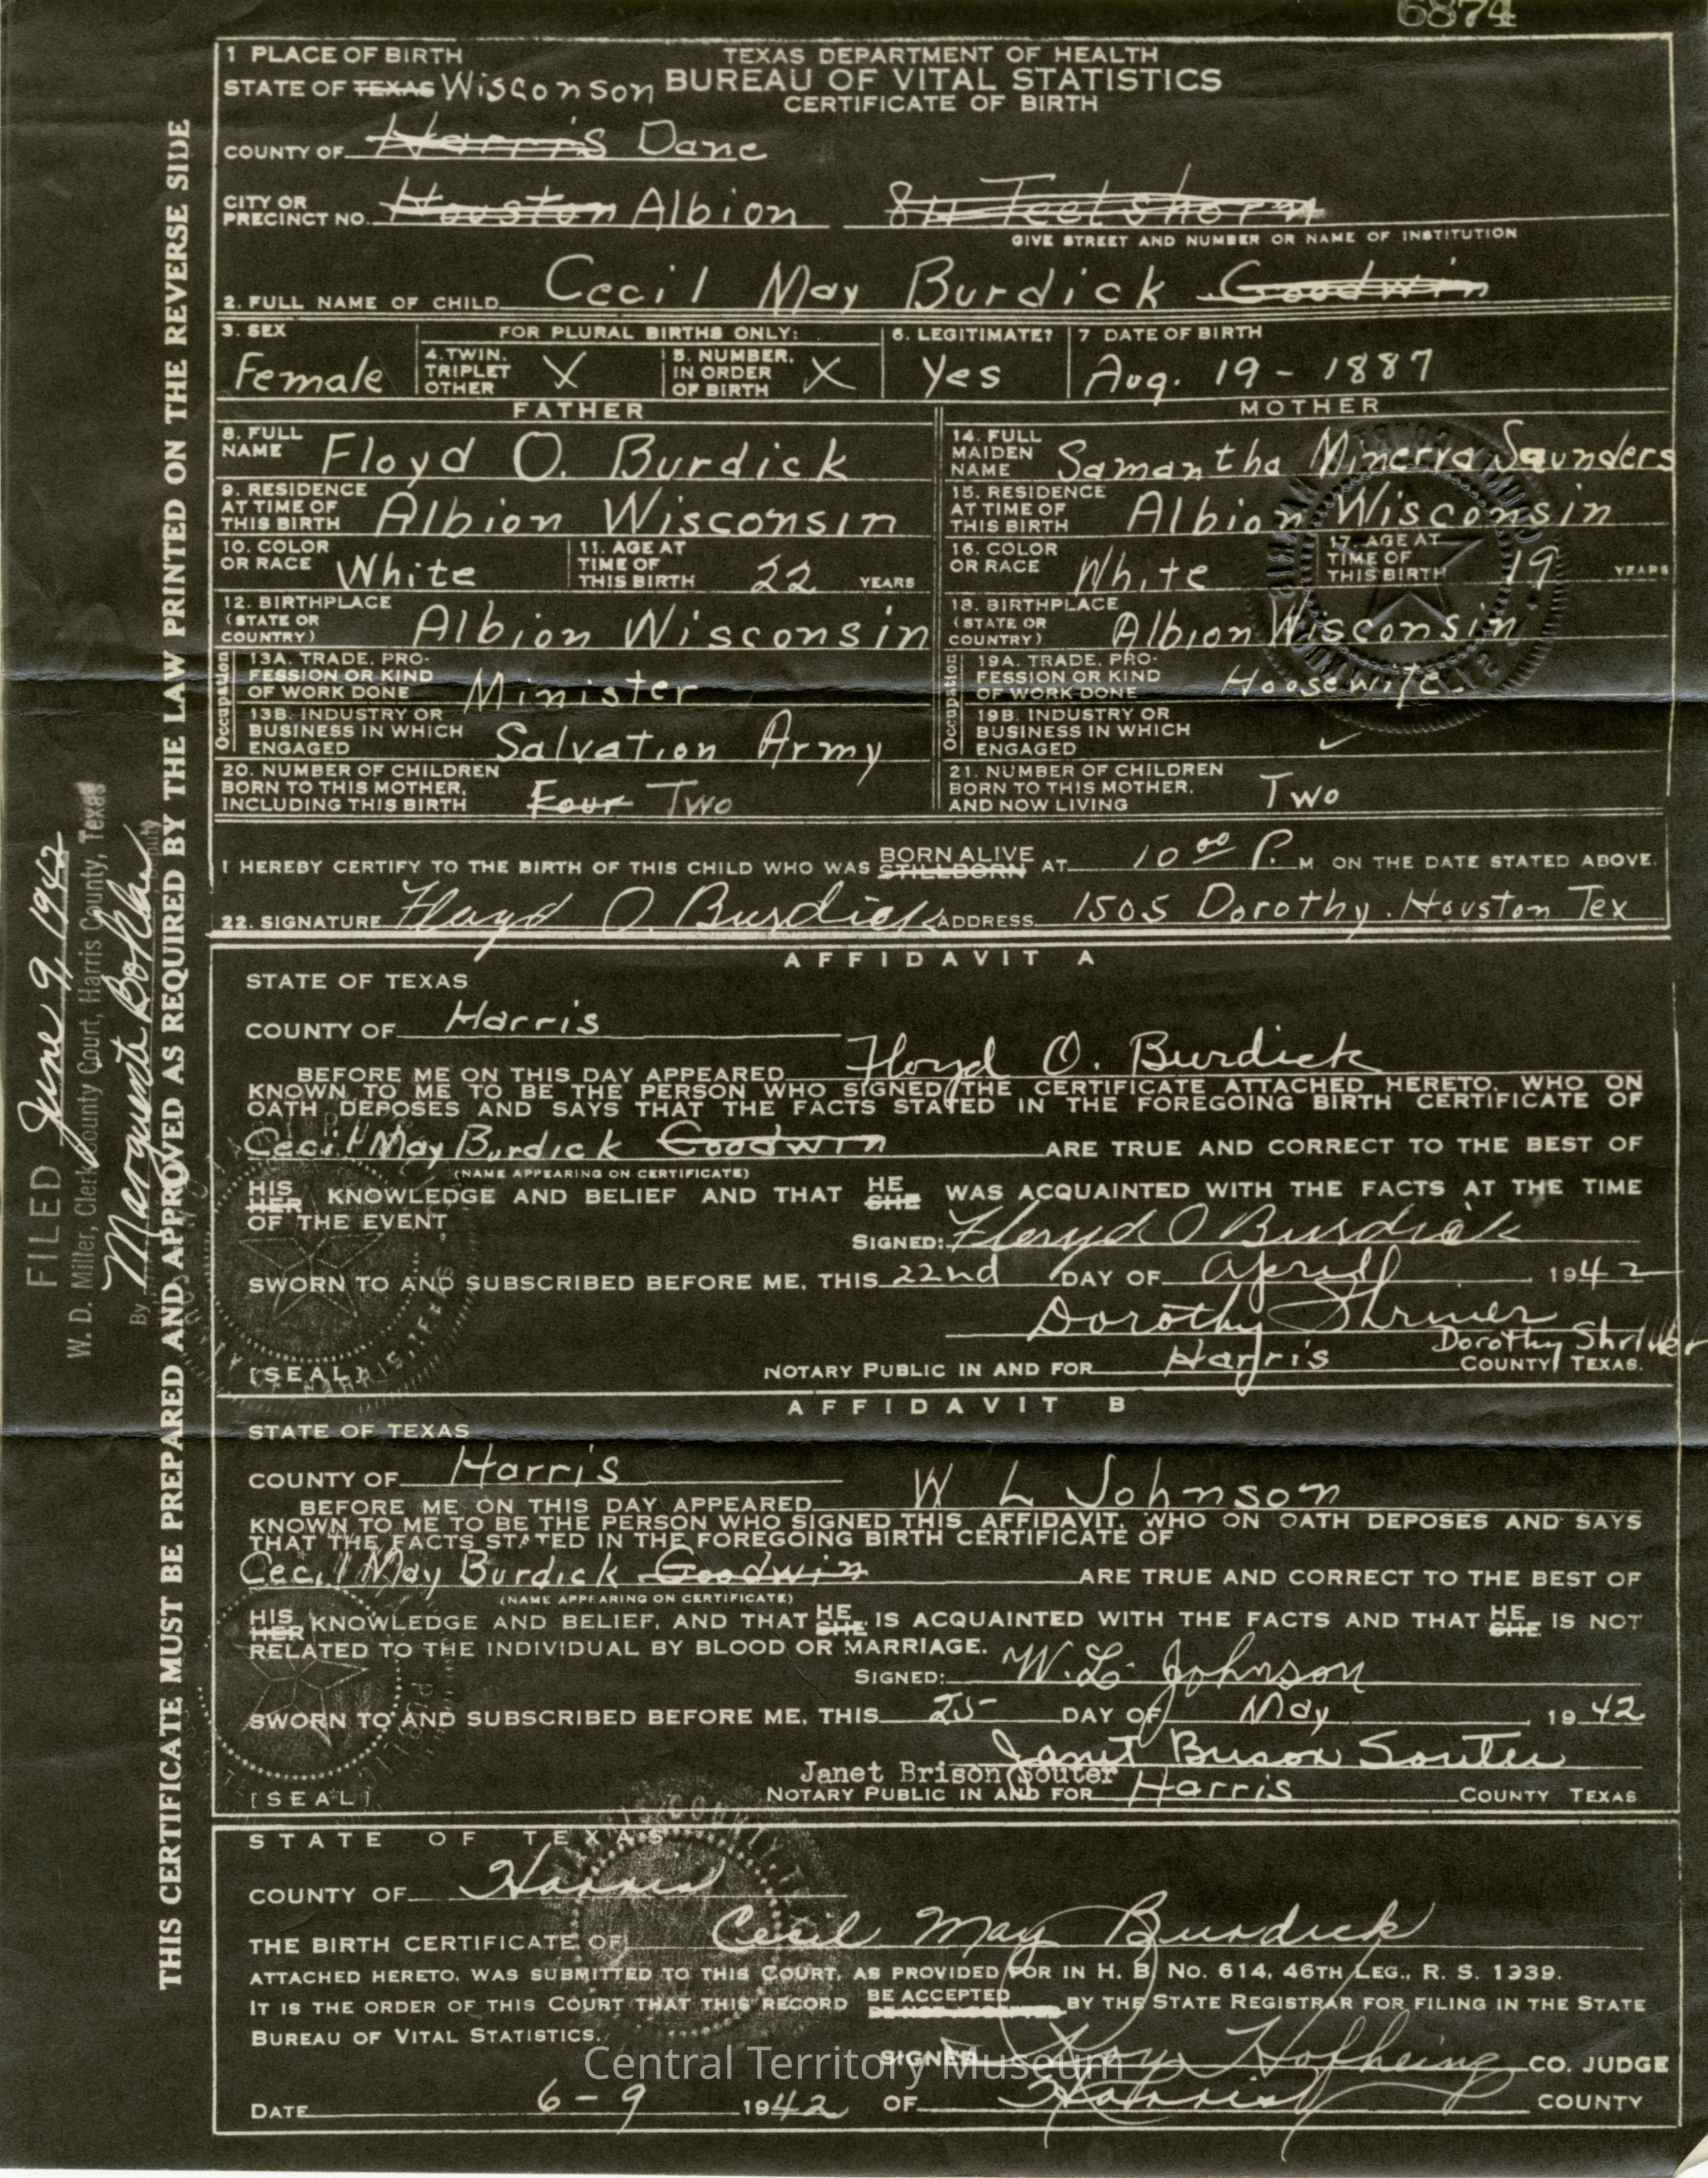 6874
1 PLACE OF BIRTH
TEXAS DEPARTMENT OF HEALTH
STATE OF TEXAS Wisconson BUREAU OF VITAL STATISTICS
CERTIFICATE OF BIRTH
COUNTY OF Harris Dane
CITY OR PRECINCT NO. Houston Albion 811 Teetshorn
GIVE STREET AND NUMBER OR NAME OF INSTITUTION
2. FULL NAME OF CHILD Cecil May Burdick Goodwin
3. SEX Female
FOR PLURAL BIRTHS ONLY:
4. TWIN, TRIPLET OTHER X
5. NUMBER, IN ORDER OF BIRTH X
6. LEGITIMATE? Yes
7 DATE OF BIRTH Aug. 19 - 1887
FATHER
8. FULL NAME Floyd O. Burdick
9. RESIDENCE AT TIME OF THIS BIRTH Albion Wisconsin
10. COLOR OR RACE White
11. AGE AT TIME OF THIS BIRTH 22 YEARS
12. BIRTHPLACE (STATE OR COUNTRY) Albion Wisconsin
Occupation
13A. TRADE, PROFESSION OR KIND OF WORK DONE Minister
13B. INDUSTRY OR BUSINESS IN WHICH ENGAGED Salvation Army
20. NUMBER OF CHILDREN BORN TO THIS MOTHER, INCLUDING THIS BIRTH Four Two
MOTHER
14. FULL MAIDEN NAME Samantha Minerva Saunders
15. RESIDENCE AT TIME OF THIS BIRTH Albion Wisconsin
16. COLOR OR RACE White
17. AGE AT TIME OF THIS BIRTH 19 YEARS
18. BIRTHPLACE (STATE OR COUNTRY) Albion Wisconsin
Occupation
19A. TRADE, PROFESSION OR KIND OF WORK DONE Hoosewife
19B. INDUSTRY OR BUSINESS IN WHICH ENGAGED ✓
21. NUMBER OF CHILDREN BORN TO THIS MOTHER, AND NOW LIVING Two
I HEREBY CERTIFY TO THE BIRTH OF THIS CHILD WHO WAS BORN ALIVE STILLBORN AT 10 00 P. M ON THE DATE STATED ABOVE.
22. SIGNATURE Floyd O. Burdick ADDRESS 1505 Dorothy. Houston Tex
AFFIDAVIT A
STATE OF TEXAS
COUNTY OF Harris
BEFORE ME ON THIS DAY APPEARED Floyd O. Burdick
KNOWN TO ME TO BE THE PERSON WHO SIGNED THE CERTIFICATE ATTACHED HERETO, WHO ON
OATH DEPOSES AND SAYS THAT THE FACTS STATED IN THE FOREGOING BIRTH CERTIFICATE OF
Cecil May Burdick Goodwin ARE TRUE AND CORRECT TO THE BEST OF
(NAME APPEARING ON CERTIFICATE)
HIS HER KNOWLEDGE AND BELIEF AND THAT HE SHE WAS ACQUAINTED WITH THE FACTS AT THE TIME
OF THE EVENT
SIGNED: Floyd O Burdick
SWORN TO AND SUBSCRIBED BEFORE ME, THIS 22nd DAY OF April 1942
Dorothy Shriver
Dorothy Shriver
[SEAL] NOTARY PUBLIC IN AND FOR Harris COUNTY TEXAS.
AFFIDAVIT B
STATE OF TEXAS
COUNTY OF Harris
BEFORE ME ON THIS DAY APPEARED W L Johnson
KNOWN TO ME TO BE THE PERSON WHO SIGNED THIS AFFIDAVIT, WHO ON OATH DEPOSES AND SAYS
THAT THE FACTS STATED IN THE FOREGOING BIRTH CERTIFICATE OF
Cecil May Burdick Goodwin ARE TRUE AND CORRECT TO THE BEST OF
(NAME APPEARING ON CERTIFICATE)
HIS HER KNOWLEDGE AND BELIEF, AND THAT HE SHE IS ACQUAINTED WITH THE FACTS AND THAT HE SHE IS NOT
RELATED TO THE INDIVIDUAL BY BLOOD OR MARRIAGE.
SIGNED: W. L. Johnson
SWORN TO AND SUBSCRIBED BEFORE ME, THIS 25 DAY OF May 1942
Janet Brison Souter
Janet Brison Souter
[SEAL] NOTARY PUBLIC IN AND FOR Harris COUNTY TEXAS
STATE OF TEXAS
COUNTY OF Harris
THE BIRTH CERTIFICATE OF Cecil May Burdick
ATTACHED HERETO, WAS SUBMITTED TO THIS COURT, AS PROVIDED FOR IN H. B. NO. 614, 46TH LEG., R. S. 1939.
IT IS THE ORDER OF THIS COURT THAT THIS RECORD BE ACCEPTED BY THE STATE REGISTRAR FOR FILING IN THE STATE
BUREAU OF VITAL STATISTICS.
SIGNED Roy Hofheinz CO. JUDGE
DATE 6-9 1942 OF Harris COUNTY
Central Territory Museum
THIS CERTIFICATE MUST BE PREPARED AND APPROVED AS REQUIRED BY THE LAW PRINTED ON THE REVERSE SIDE
FILED June 9, 1942
W. D. Miller, Clerk County Court, Harris County, Texas
By Marguerite Deputy